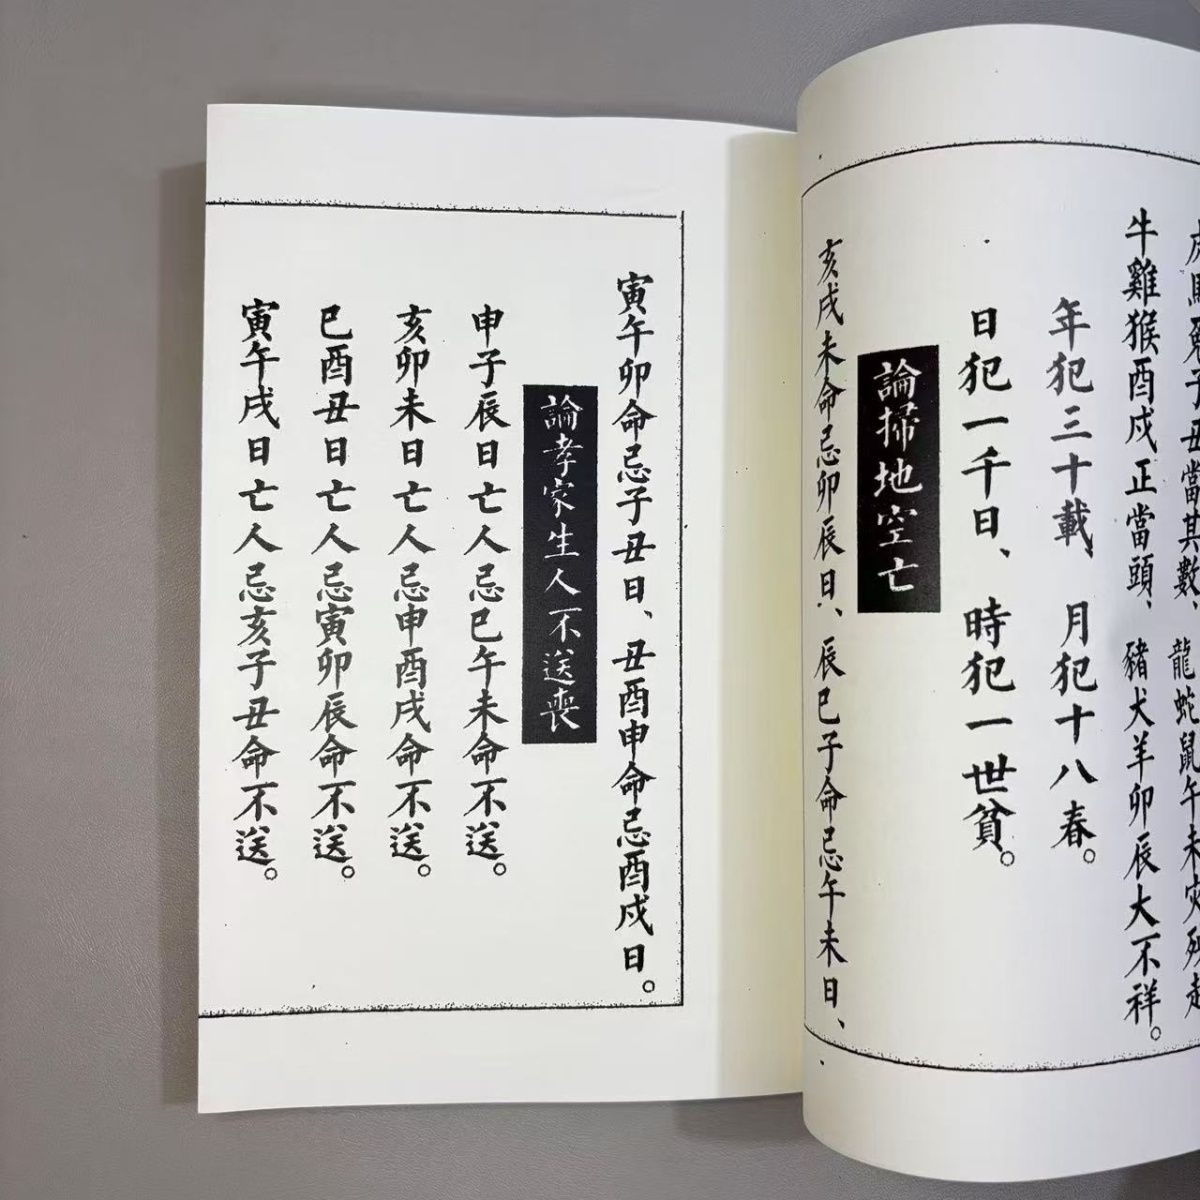 虎馬兔子丑當其數、龍蛇鼠午未災殃起
牛雞猴酉戌正當頭、豬犬羊卯辰大不祥。
年犯三十載、月犯十八春。
日犯一千日、時犯一世貧。
論掃地空亡
亥戌未命忌卯辰日、辰巳子命忌午未日、
寅午卯命忌子丑日、丑酉申命忌酉戌日。
論孝家生人不送喪
申子辰日亡人忌巳午未命不送。
亥卯未日亡人忌申酉戌命不送。
巳酉丑日亡人忌寅卯辰命不送。
寅午戌日亡人忌亥子丑命不送。